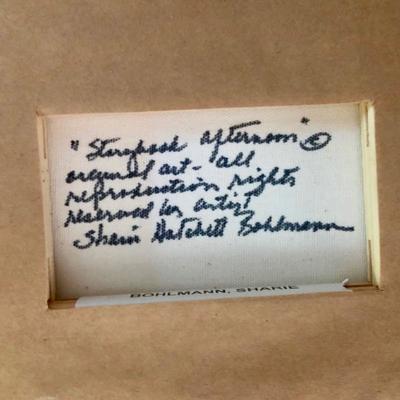 "Storybook Afternoon" ©
original art - all
reproduction rights
reserved by artist
Sharie Hatchett Bohlmann
BOHLMANN, SHARIE